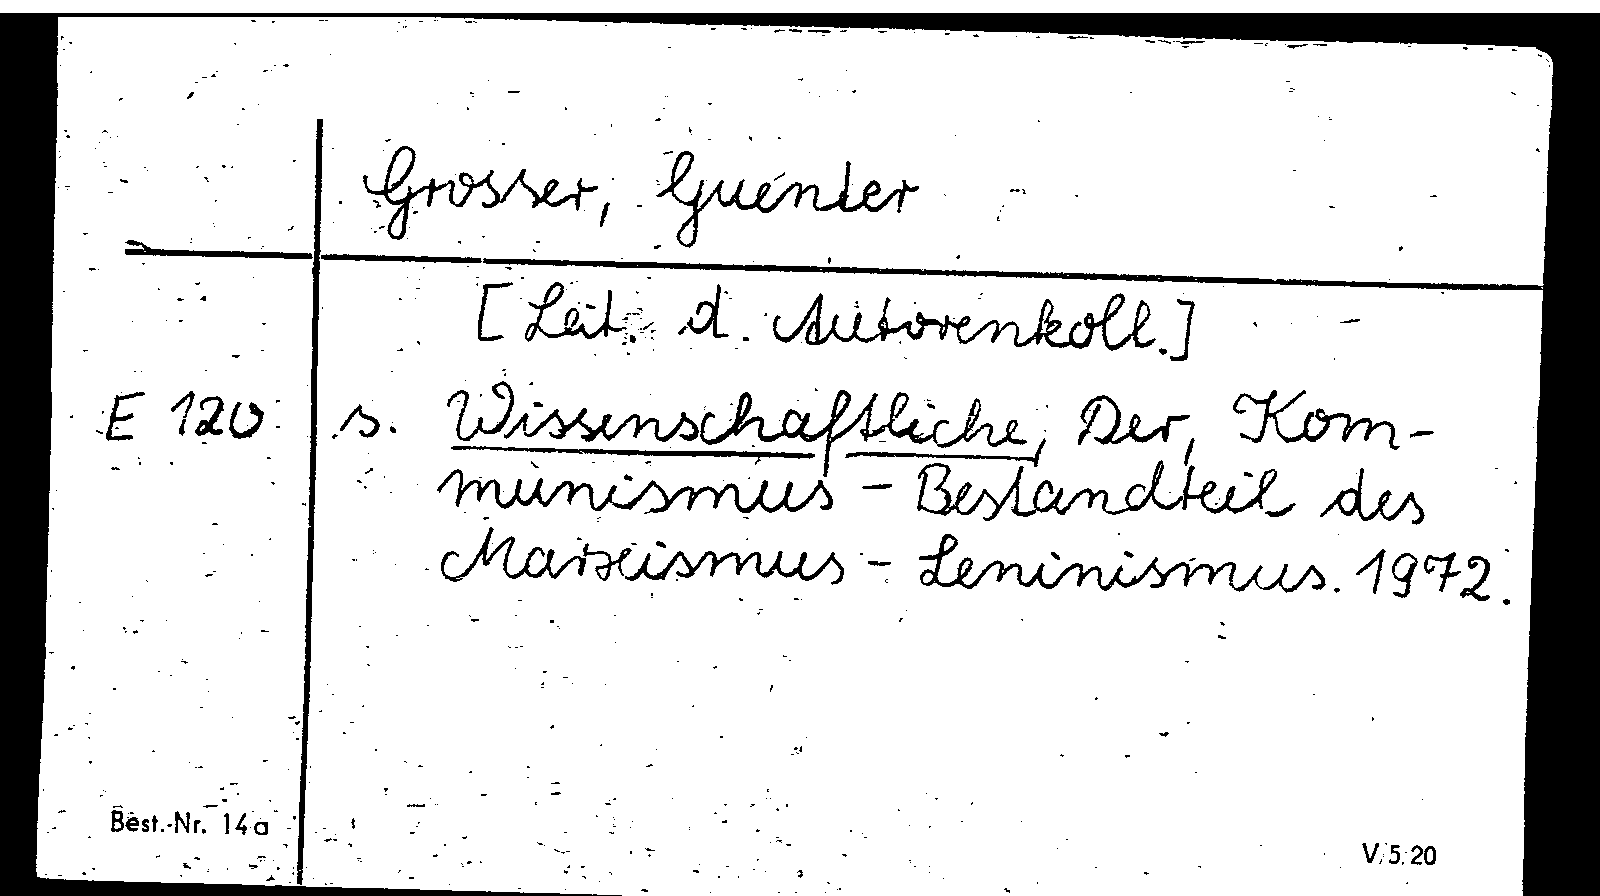 Grosser, Guenter
[Leit. d. Autorenkoll.]
E 120 s. Wissenschaftliche, Der, Kom-
munismus - Bestandteil des
Marxismus - Leninismus. 1972.
Best.-Nr. 14a
V/5/20